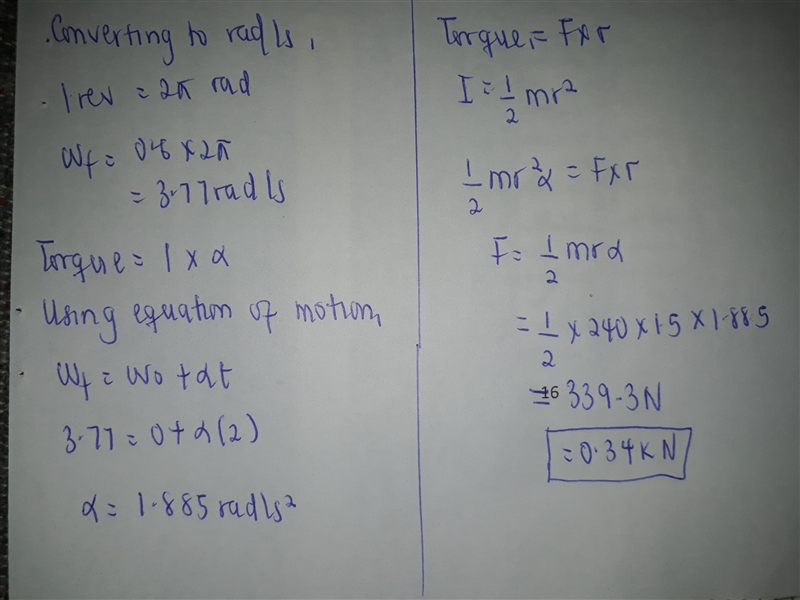 .Converting to rad/s,
. 1rev = 2π rad
Wf = 0.6 × 2π
= 3.77 rad/s
Torque = I × α
. Using equation of motion,
. Wf = Wo + αt
3.77 = 0 + α(2)
α = 1.885 rad/s²
Torque, = F×r
I = 1/2 mr²
1/2 mr²α = F×r
F = 1/2 mrα
= 1/2 × 240 × 1.5 × 1.885
= 16 339.3N
= 0.34KN